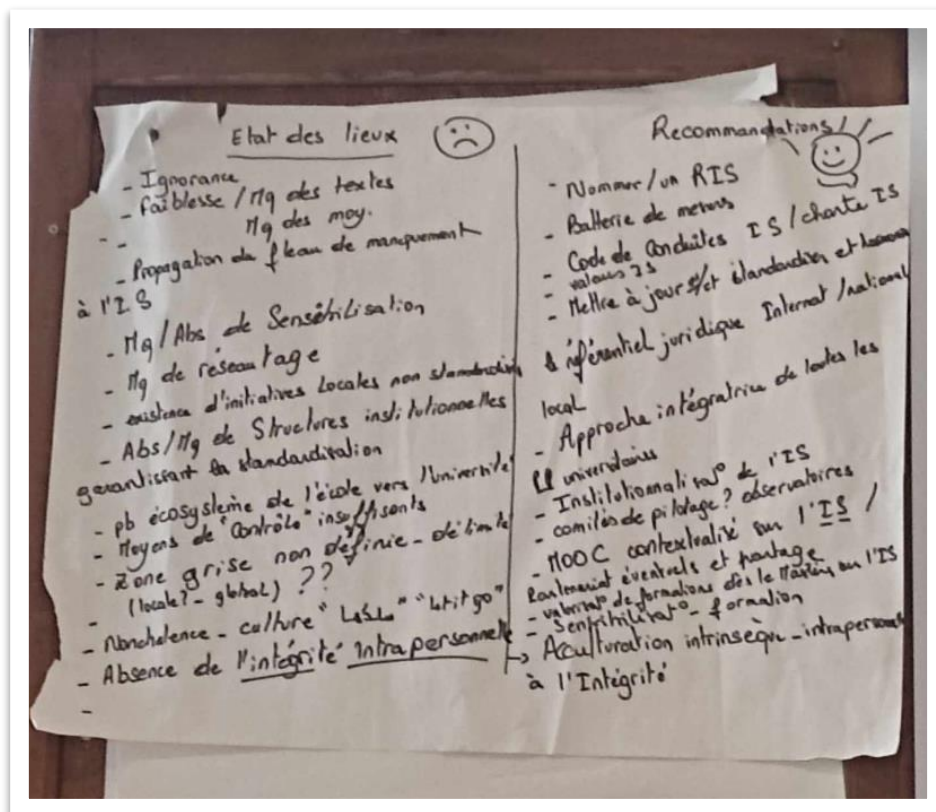 Etat des lieux
- Ignorance
- faiblesse / Mq des textes
- - Mq des moy.
- Propagation du fleau de manquement
à l'I.S
- Mq / Abs de Sensibilisation
- Mq de réseautage
- existence d'initiatives Locales non
- Abs / Mq de Structures institutionnelles
garantissant la standardisation
- pb écosystème de l'école vers l'Université
- Moyens de "Contrôle" insuffisants
- Zone grise non définie - délimité
- (locale? - global) ??
- Nonchalence - culture "let it go"
- Absence de l'intégrité Intrapersonnelle
-
Recommandations
- Nommer / un RIS
- Batterie de
- Code de Conduites IS / charte IS
- valeurs IS
- Mettre à jour et standardiser et
référentiel juridique Internat / national
local
- Approche intégratrice de toutes les
universitaires
- Institutionnalisat° de l'IS
- comités de pilotage? observatoires
- MOOC contextualisé sur l'IS /
Partenariat éventuels et partage
- de formations dès le sur l'IS
- Sensibilisat° - formation
↳ Aculturation intrinsèqu -
à l'Intégrité